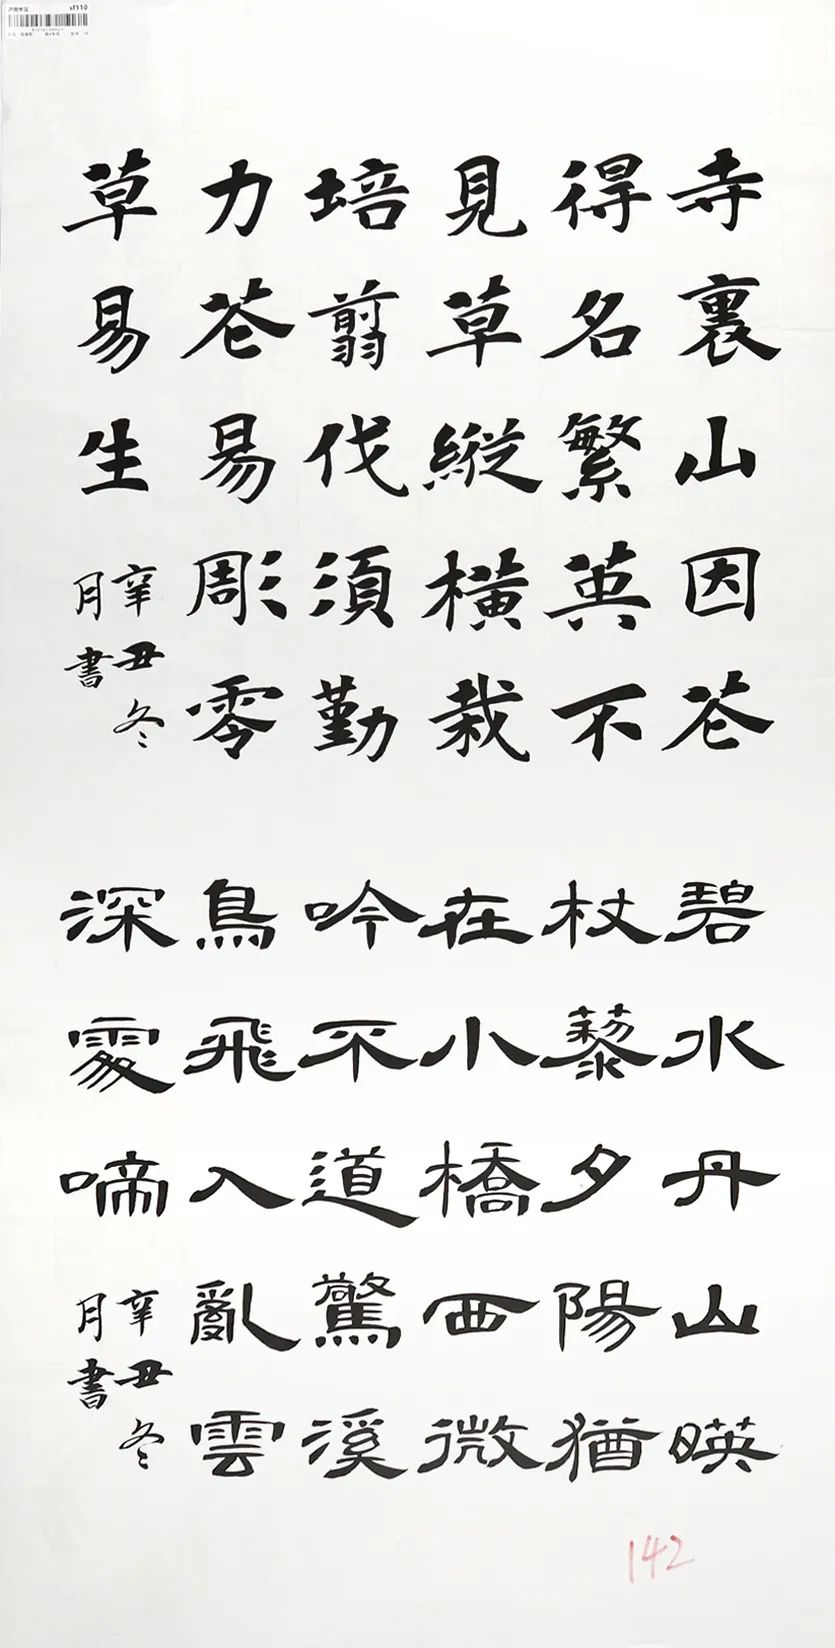 sf110
寺裏山因花
得名繁英不
見草縱橫栽
培翦伐須勤
力花易彫零
草易生
辛丑冬
月書
碧水丹山暎
杖藜夕陽猶
在小橋西微
吟不道驚溪
鳥飛入亂雲
深處啼
辛丑冬
月書
142